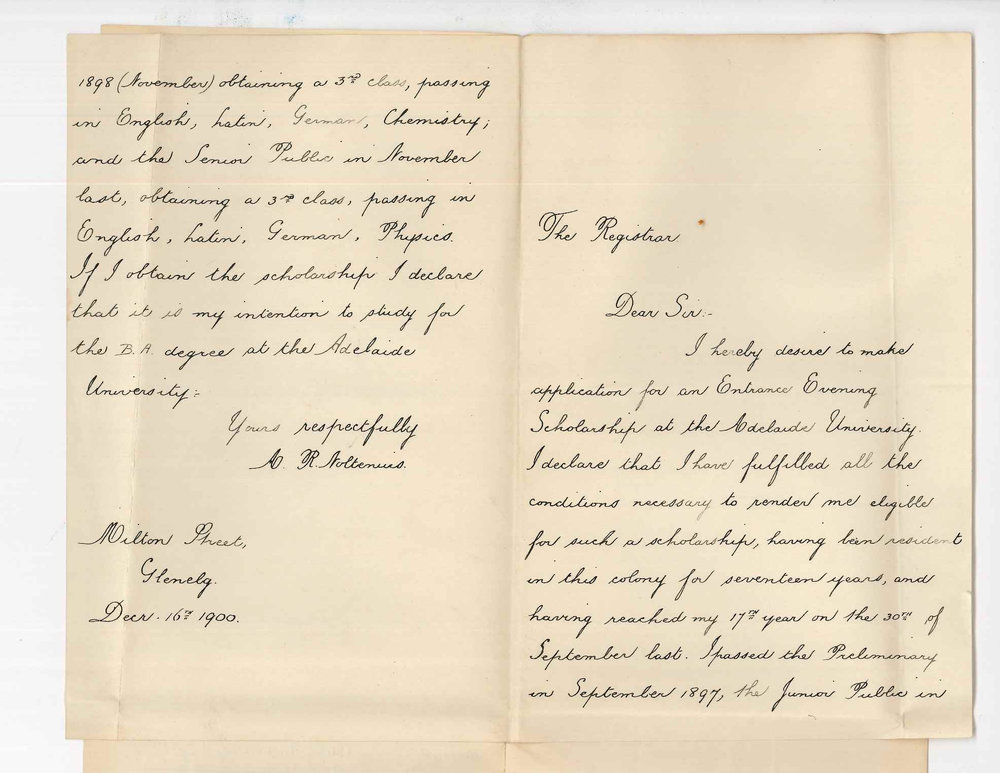 The Registrar
Dear Sir:-
I hereby desire to make
application for an Entrance Evening
Scholarship at the Adelaide University.
I declare that I have fulfilled all the
conditions necessary to render me eligible
for such a scholarship, having been resident
in this colony for seventeen years, and
having reached my 17TH year on the 30TH of
September last. I passed the Preliminary
in September 1897, the Junior Public in
1898 (November) obtaining a 3RD class, passing
in English, Latin, German, Chemistry;
and the Senior Public in November
last, obtaining a 3RD class, passing in
English, Latin, German, Physics.
If I obtain the scholarship I declare
that it is my intention to study for
the B.A. degree at the Adelaide
University:-
Yours respectfully
A. R. Noltenius.
Milton Street,
Glenelg.
Decr. 16TH 1900.